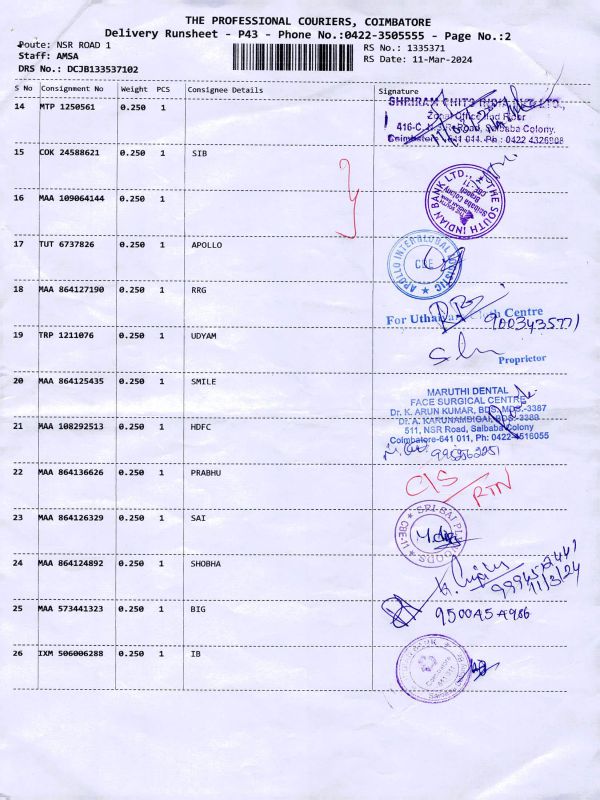 THE PROFESSIONAL COURIERS, COIMBATORE
Delivery Runsheet - P43 - Phone No.:0422-3505555 - Page No.:2
Route: NSR ROAD 1
RS No.: 1335371
Staff: AMSA
RS Date: 11-Mar-2024
DRS No.: DCJB133537102
S No Consignment No Weight PCS Consignee Details Signature
14 MTP 1250561 0.250 1
SHRIRAM CHITS INDIA LTD.,
Zonal Office IInd Floor
416-C, Road, Saibaba Colony,
Coimbatore-641 011. Ph : 0422 4326908
15 COK 24588621 0.250 1 SIB
16 MAA 109064144 0.250 1
THE SOUTH INDIAN BANK LTD.
Saibaba Colony
Branch
CBE-11
17 TUT 6737826 0.250 1 APOLLO
APOLLO INTERGLOBAL LOGISTIC
CBE
18 MAA 864127190 0.250 1 RRG
For Cloth Centre
9003435771
19 TRP 1211076 0.250 1 UDYAM
Proprietor
20 MAA 864125435 0.250 1 SMILE
MARUTHI DENTAL
FACE SURGICAL CENTRE
Dr. K. ARUN KUMAR, BDS, MDS.-3387
Dr. A. KARUNAMBIGAI, BDS-3389
511, NSR Road, Saibaba Colony
Coimbatore-641 011, Ph: 0422-4516055
21 MAA 108292513 0.250 1 HDFC
22 MAA 864136626 0.250 1 PRABHU
C/S
RTN
23 MAA 864126329 0.250 1 SAI
SRI SAI
CBE-11
24 MAA 864124892 0.250 1 SHOBHA
11/3/24
25 MAA 573441323 0.250 1 BIG
9500454986
26 IXM 506006288 0.250 1 IB
BANK